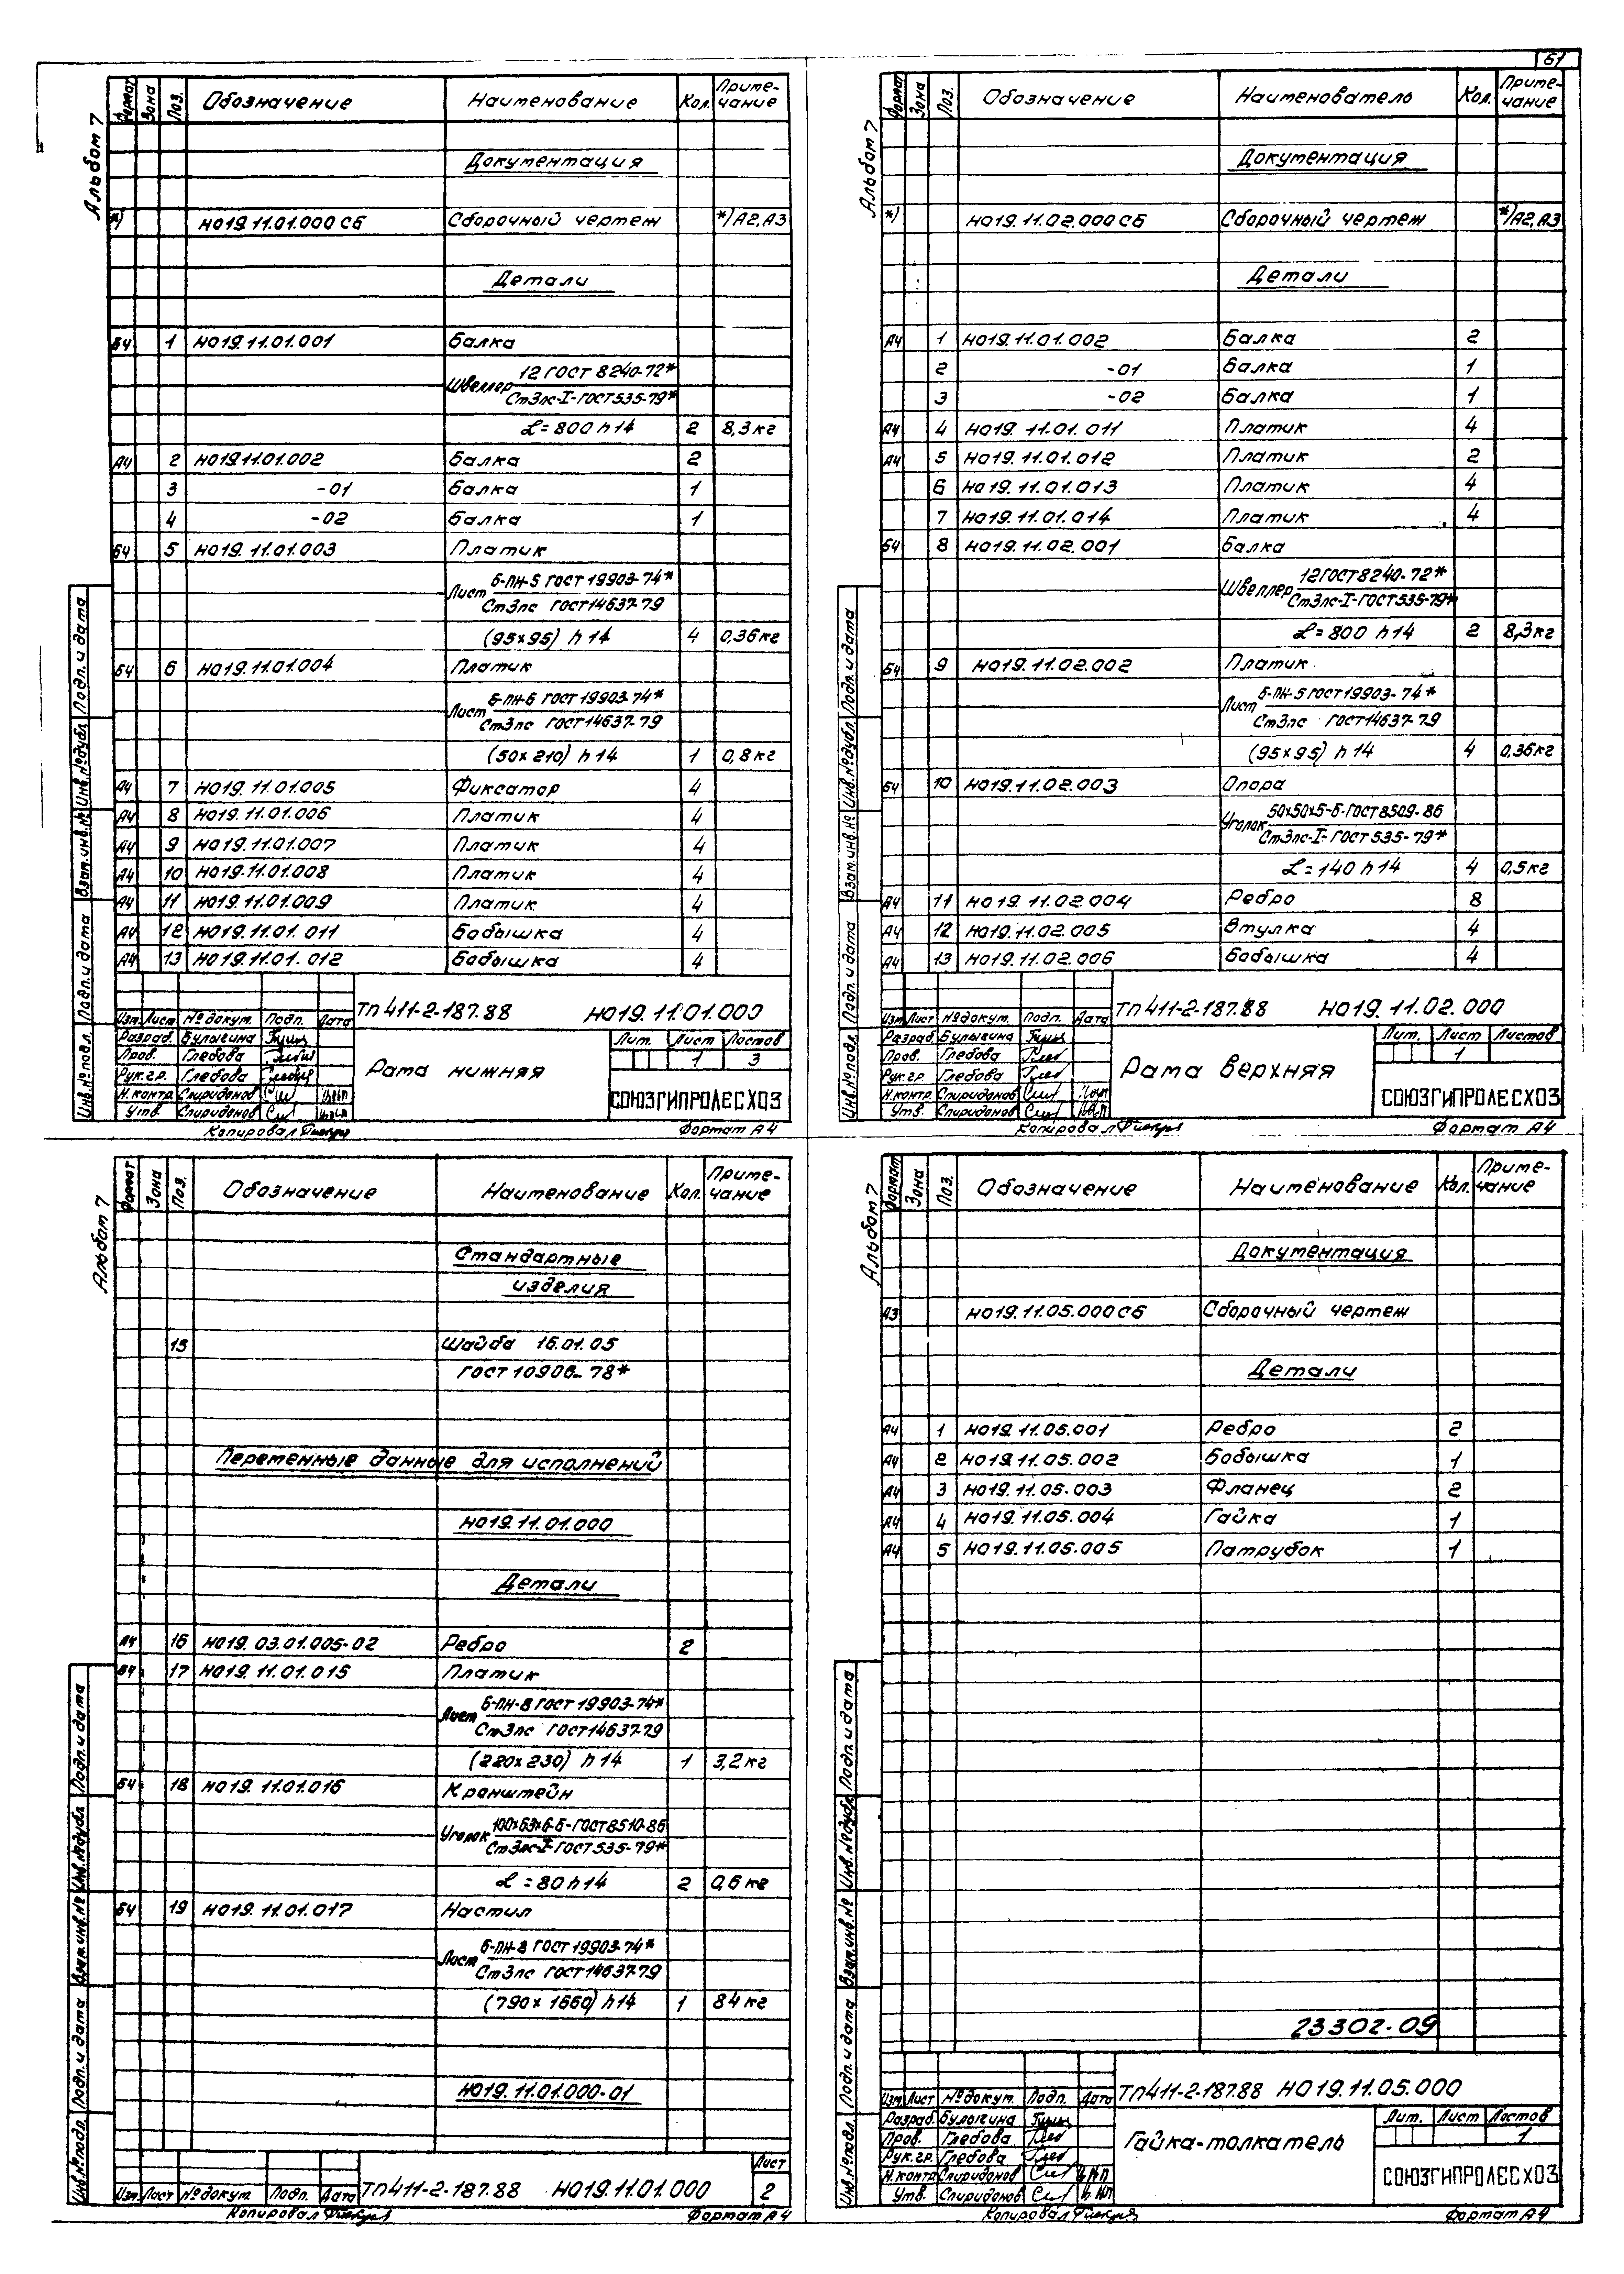 61
Альбом 7
Формат Зона Поз. Обозначение Наименование Кол. Приме-чание
Документация
*) НО19.11.01.000 СБ Сборочный чертеж *) А2, А3
Детали
БЧ 1 НО19.11.01.001 Балка
Швеллер 12 ГОСТ 8240-72*
Ст3пс-I-ГОСТ535-79*
L=800 h14 2 8,3кг
А4 2 НО19.11.01.002 Балка 2
3 -01 Балка 1
4 -02 Балка 1
БЧ 5 НО19.11.01.003 Платик
Лист Б-ПН-5 ГОСТ 19903-74*
Ст3пс ГОСТ14637-79
(95х95) h14 4 0,36кг
БЧ 6 НО19.11.01.004 Платик
Лист Б-ПН-6 ГОСТ 19903-74*
Ст3пс ГОСТ14637-79
(50х210) h14 1 0,8кг
А4 7 НО19.11.01.005 Фиксатор 4
А4 8 НО19.11.01.006 Платик 4
А4 9 НО19.11.01.007 Платик 4
А4 10 НО19.11.01.008 Платик 4
А4 11 НО19.11.01.009 Платик 4
А4 12 НО19.11.01.011 Бобышка 4
А4 13 НО19.11.01.012 Бобышка 4
ТП 411-2-187.88 НО19.11.01.000
Изм. Лист № докум. Подп. Дата
Разраб. Булыгина
Пров. Глебова
Рук.гр. Глебова
Н.контр. Спиридонов
Утв. Спиридонов
Рама нижняя
Лит. Лист Листов
1 3
СОЮЗГИПРОЛЕСХОЗ
Инв.№ подл. Подп. и дата Взам.инв.№ Инв.№ дубл. Подп. и дата
Копировал Формат А4
Альбом 7
Формат Зона Поз. Обозначение Наименователь Кол. Приме-чание
Документация
*) НО19.11.02.000 СБ Сборочный чертеж *) А2, А3
Детали
А4 1 НО19.11.01.002 Балка 2
2 -01 Балка 1
3 -02 Балка 1
А4 4 НО19.11.01.011 Платик 4
А4 5 НО19.11.01.012 Платик 2
6 НО19.11.01.013 Платик 4
7 НО19.11.01.014 Платик 4
БЧ 8 НО19.11.02.001 Балка
Швеллер 12ГОСТ8240-72*
Ст3пс-I-ГОСТ535-79*
L=800 h14 2 8,3кг
БЧ 9 НО19.11.02.002 Платик
Лист Б-ПН-5 ГОСТ19903-74*
Ст3пс ГОСТ14637-79
(95х95) h14 4 0,36кг
БЧ 10 НО19.11.02.003 Опора
Уголок 50х50х5-Б-ГОСТ8509-86
Ст3пс-I-ГОСТ535-79*
L=140 h14 4 0,5кг
А4 11 НО19.11.02.004 Ребро 8
А4 12 НО19.11.02.005 Втулка 4
А4 13 НО19.11.02.006 Бобышка 4
ТП 411-2-187.88 НО19.11.02.000
Изм. Лист № докум. Подп. Дата
Разраб. Булыгина
Пров. Глебова
Рук.гр. Глебова
Н.контр. Спиридонов
Утв. Спиридонов
Рама верхняя
Лит. Лист Листов
1
СОЮЗГИПРОЛЕСХОЗ
Инв.№ подл. Подп. и дата Взам.инв.№ Инв.№ дубл. Подп. и дата
Копировал Формат А4
Альбом 7
Формат Зона Поз. Обозначение Наименование Кол. Приме-чание
Стандартные
изделия
15 Шайба 16.01.05
ГОСТ 10906-78*
Переменные данные для исполнений
НО19.11.01.000
Детали
А4 16 НО19.03.01.005-02 Ребро 2
БЧ 17 НО19.11.01.015 Платик
Лист Б-ПН-8 ГОСТ 19903-74*
Ст3пс ГОСТ14637-79
(220х230) h14 1 3,2кг
БЧ 18 НО19.11.01.016 Кронштейн
Уголок 100х63х6-Б-ГОСТ8510-86
Ст3пс-I-ГОСТ535-79*
L=80h14 2 0,6кг
БЧ 19 НО19.11.01.017 Настил
Лист Б-ПН-8 ГОСТ 19903-74*
Ст3пс ГОСТ14637-79
(790х1660) h14 1 84кг
НО19.11.01.000-01
Изм. Лист № докум. Подп. Дата
ТП 411-2-187.88 НО19.11.01.000
Лист
2
Инв.№ подл. Подп. и дата Взам.инв.№ Инв.№ дубл. Подп. и дата
Копировал Формат А4
Альбом 7
Формат Зона Поз. Обозначение Наименование Кол. Приме-чание
Документация
А3 НО19.11.05.000СБ Сборочный чертеж
Детали
А4 1 НО19.11.05.001 Ребро 2
А4 2 НО19.11.05.002 Бобышка 1
А4 3 НО19.11.05.003 Фланец 2
А4 4 НО19.11.05.004 Гайка 1
А4 5 НО19.11.05.005 Патрубок 1
23302-09
ТП 411-2-187.88 НО19.11.05.000
Изм. Лист № докум. Подп. Дата
Разраб. Булыгина
Пров. Глебова
Рук.гр. Глебова
Н.контр. Спиридонов
Утв. Спиридонов
Гайка-толкатель
Лит. Лист Листов
1
СОЮЗГИПРОЛЕСХОЗ
Инв.№ подл. Подп. и дата Взам.инв.№ Инв.№ дубл. Подп. и дата
Копировал Формат А4